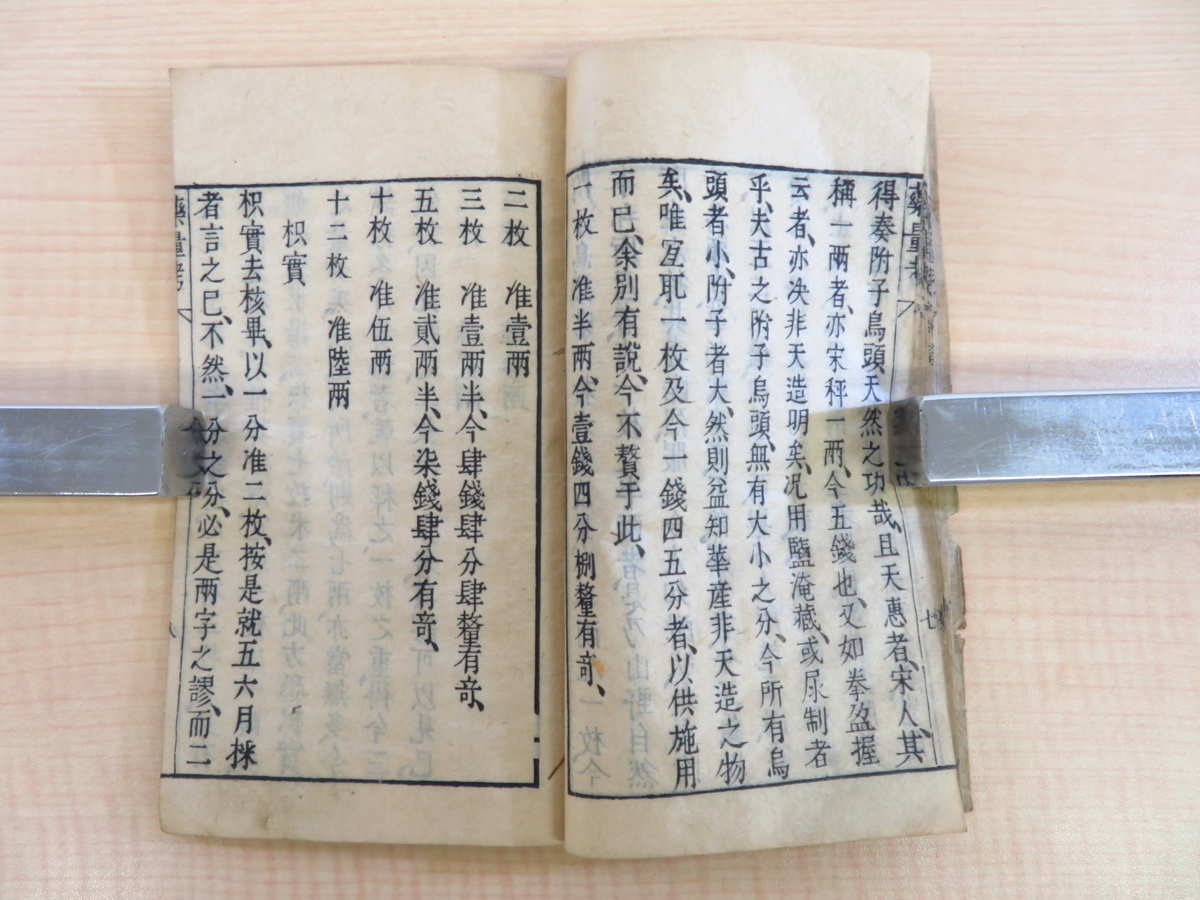 藥量考
得奏附子烏頭天然之功哉、且天惠者、宋人、其
稱一兩者、亦宋秤一兩、今五錢也、又如拳盈握
云者、亦决非天造明矣、况用鹽淹藏、或尿制者
乎、夫古之附子烏頭、無有大小之分、今所有烏
頭者小、附子者大、然則益知華產非天造之物
矣、唯宐耴一枚及今一錢四五分者、以供施用
而已、余別有說、今不贅于此、
一枚 准半兩、今壹錢四分捌釐有竒、
七
二枚 准壹兩
三枚 准壹兩半、今肆錢肆分肆釐有竒、
五枚 准貳兩半、今柒錢肆分有竒、
十枚 准伍兩
十二枚 准陸兩
枳實
枳實去核畢、以一分准二枚、按是就五六月採
者言之已、不然、一分之分、必是兩字之謬、而二
藥量考
八